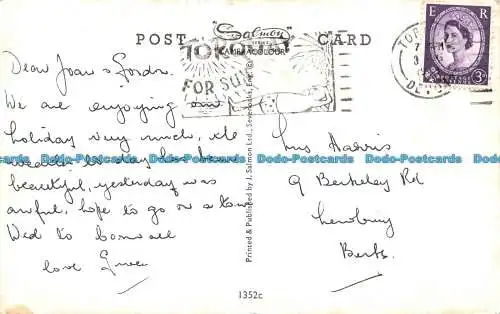 POST CARD
Salmon
SERIES
CAMERACOLOUR
TORQUAY
FOR SUN
E R
3D
TOR
DEVON
Dear Joan & Gordon
We are enjoying our
holiday very much, the
weather today has been
beautiful, yesterday was
awful, hope to go on a tour
Wed to Cornwall
love
Mrs Harris
9 Berkeley Rd
Newbury
Berks.
Printed & Published by J. Salmon Ltd., Sevenoaks, England
1352c
Dodo-Postcards Dodo-Postcards Dodo-Postcards Dodo-Postcards Dodo-Postcards